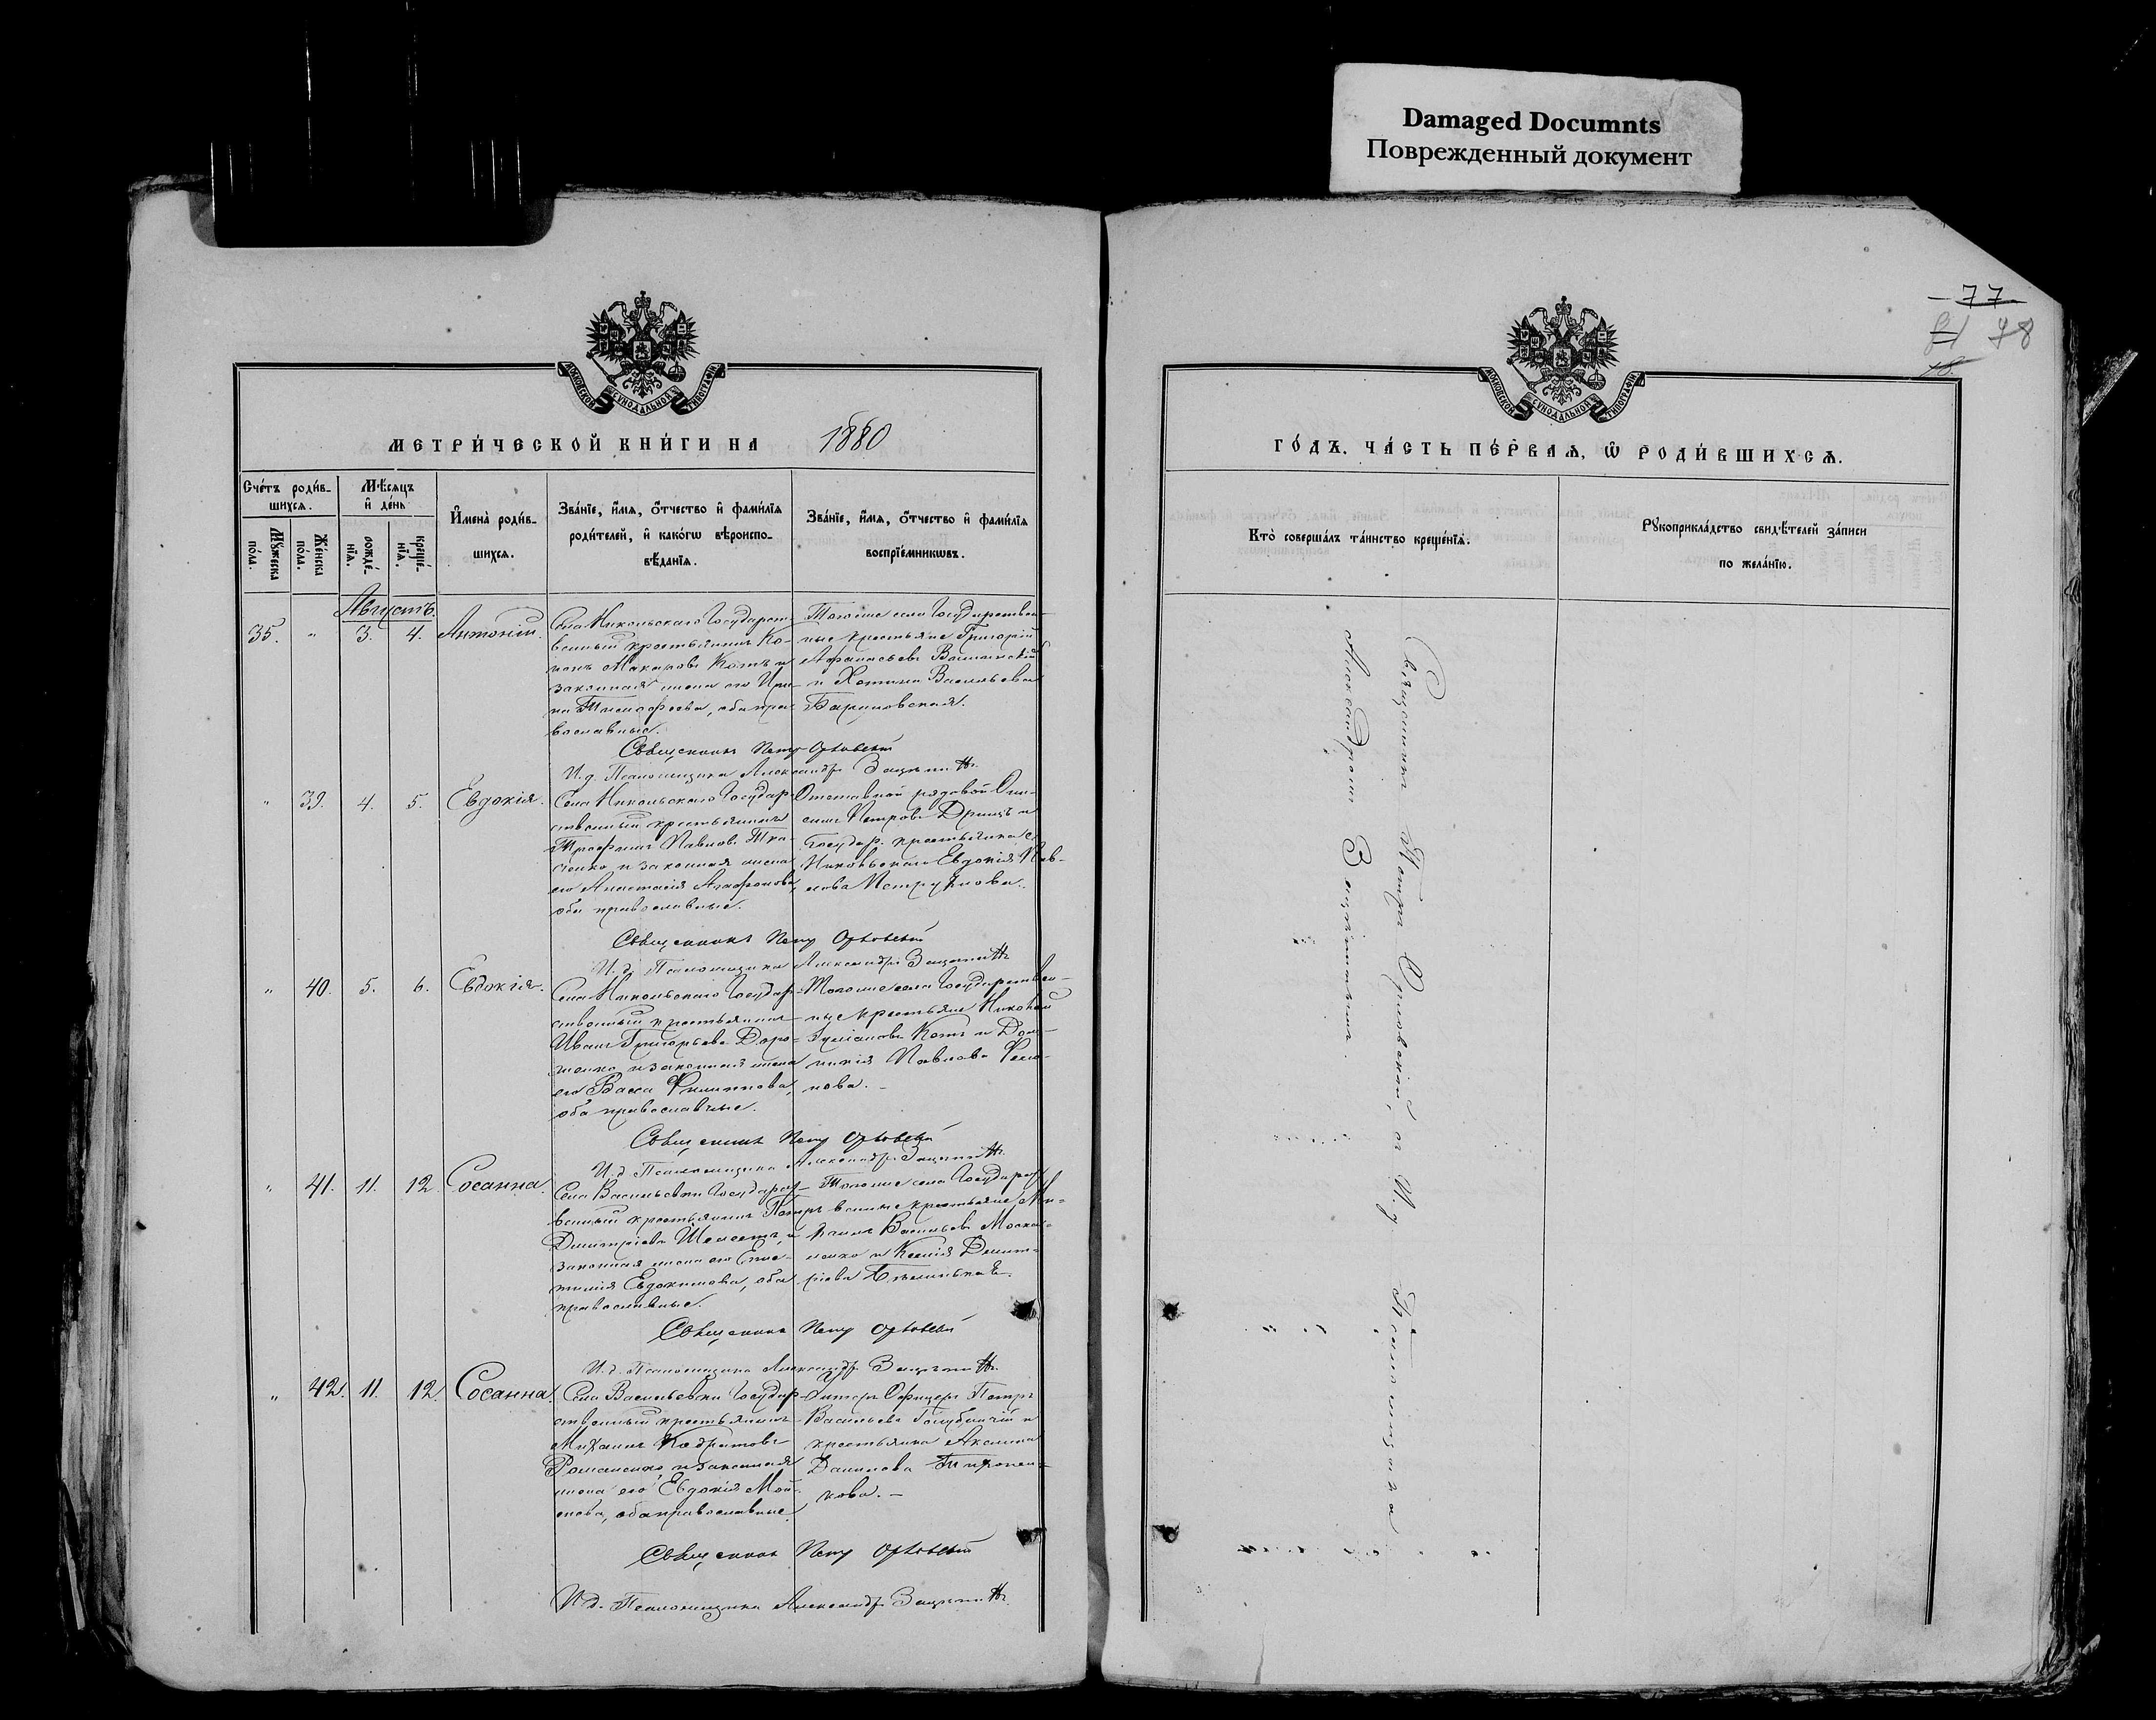 Damaged Documnts
Поврежденный документ
77
81 78
18.
МОСКОВСКОЙ СѴНОДАЛЬНОЙ ТИПОГРАФІИ
МЕТРИ́ЧЕСКОЙ КНИ́ГИ НА 1880
Сче́тъ роди́в-
шихсѧ.
Мꙋ́жеска по́ла.
Же́нска по́ла.
Мѣ́сѧцъ
и҆ де́нь
рожде́-
нїѧ.
креще́-
нїѧ.
И҆мена̀ роди́в-
шихсѧ.
Зва́нїе, и҆́мѧ, ѻ҆́тчество и҆ фами́лїѧ
роди́телей, и҆ како́гѡ вѣроиспо-
вѣ́данїѧ.
Зва́нїе, и҆́мѧ, ѻ҆́тчество и҆ фами́лїѧ
воспрїе́мникѡвъ.
Августъ.
35. " 3. 4. Антоній.
Села Никольскаго Государст-
венный крестьянинъ Ко-
нонъ Макаровъ Котъ и
законная жена его Ири-
на Тимофеева, оба пра-
вославные.
Тогоже села Государствен-
ные крестьяне Григорій
Афанасьевъ
и Хотина Васильева
Барановская.
Священникъ Петръ Орловскій
И. д. Псаломщика Александръ
" 39. 4. 5. Евдокія.
Села Никольскаго Государ-
ственный крестьянинъ
Трофимъ Павловъ Тка-
ченко и законная жена
его Анастасія Агафонова,
оба православные.
Отставной рядовой Они-
симъ Петровъ Дрищъ и
Государ. крестьянка с.
Никольскаго Евдокія Пав-
лова Петрункова.
Священникъ Петръ Орловскій
И. д. Псаломщика Александръ
" 40. 5. 6. Евдокія.
Села Никольскаго Государ-
ственный крестьянинъ
Иванъ Григорьевъ Доро-
шенко и законная жена
его Васса Филиппова,
оба православные.
Тогоже села Государствен-
ные крестьяне Николай
Куліановъ Котъ и Дом-
никія Павлова
нова. –
Священникъ Петръ Орловскій
И. д. Псаломщика Александръ
" 41. 11. 12. Сосанна.
Села Васильевки Государст-
венный крестьянинъ Петръ
Дмитріевъ Шелестъ, и
законная жена его Епи-
тимія Евдокимова, оба
православные.
Тогоже села Государст-
венные крестьяне Ми-
хаилъ Васильевъ Моска-
ленко и Ксенія Дмит-
ріева
Священникъ Петръ Орловскій
И. д. Псаломщика Александръ
" 42. 11. 12. Сосанна.
Села Васильевки Государ-
ственный крестьянинъ
Михаилъ Кодратовъ
Романенко и законная
жена его Евдокія Мои-
сеева, оба православные.
Унтеръ Офицеръ Петръ
Васильевъ Голубничій и
крестьянка Акилина
Данилова
кова. –
Священникъ Петръ Орловскій
И. д. Псаломщика Александръ
МОСКОВСКОЙ СѴНОДАЛЬНОЙ ТИПОГРАФІИ
ГО́ДЪ. ЧА́СТЬ ПЕ́РВАѦ, Ѽ РОДИ́ВШИХСѦ.
Кто̀ соверша́лъ та́инство креще́нїѧ.
Рꙋкоприкла́дство свидѣ́телей за́писи
по жела́нїю.
Священникъ Петръ Орловскій, съ И. д. Псаломщика
Александромъ